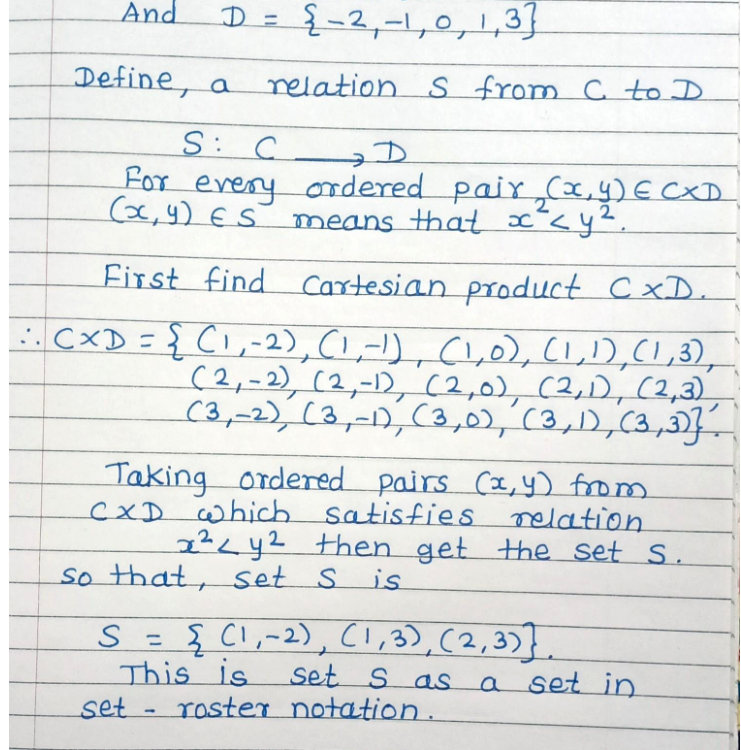 And D = {-2,-1,0,1,3}
Define, a relation S from C to D
S: C ⟶ D
For every ordered pair (x,y) ∈ C×D
(x,y) ∈ S means that x² < y².
First find Cartesian product C×D.
∴ C×D = { (1,-2), (1,-1), (1,0), (1,1), (1,3),
(2,-2), (2,-1), (2,0), (2,1), (2,3),
(3,-2), (3,-1), (3,0), (3,1), (3,3)}.
Taking ordered pairs (x,y) from
C×D which satisfies relation
x² < y² then get the set S.
so that, set S is
S = { (1,-2), (1,3), (2,3)}.
This is set S as a set in
set - roster notation.